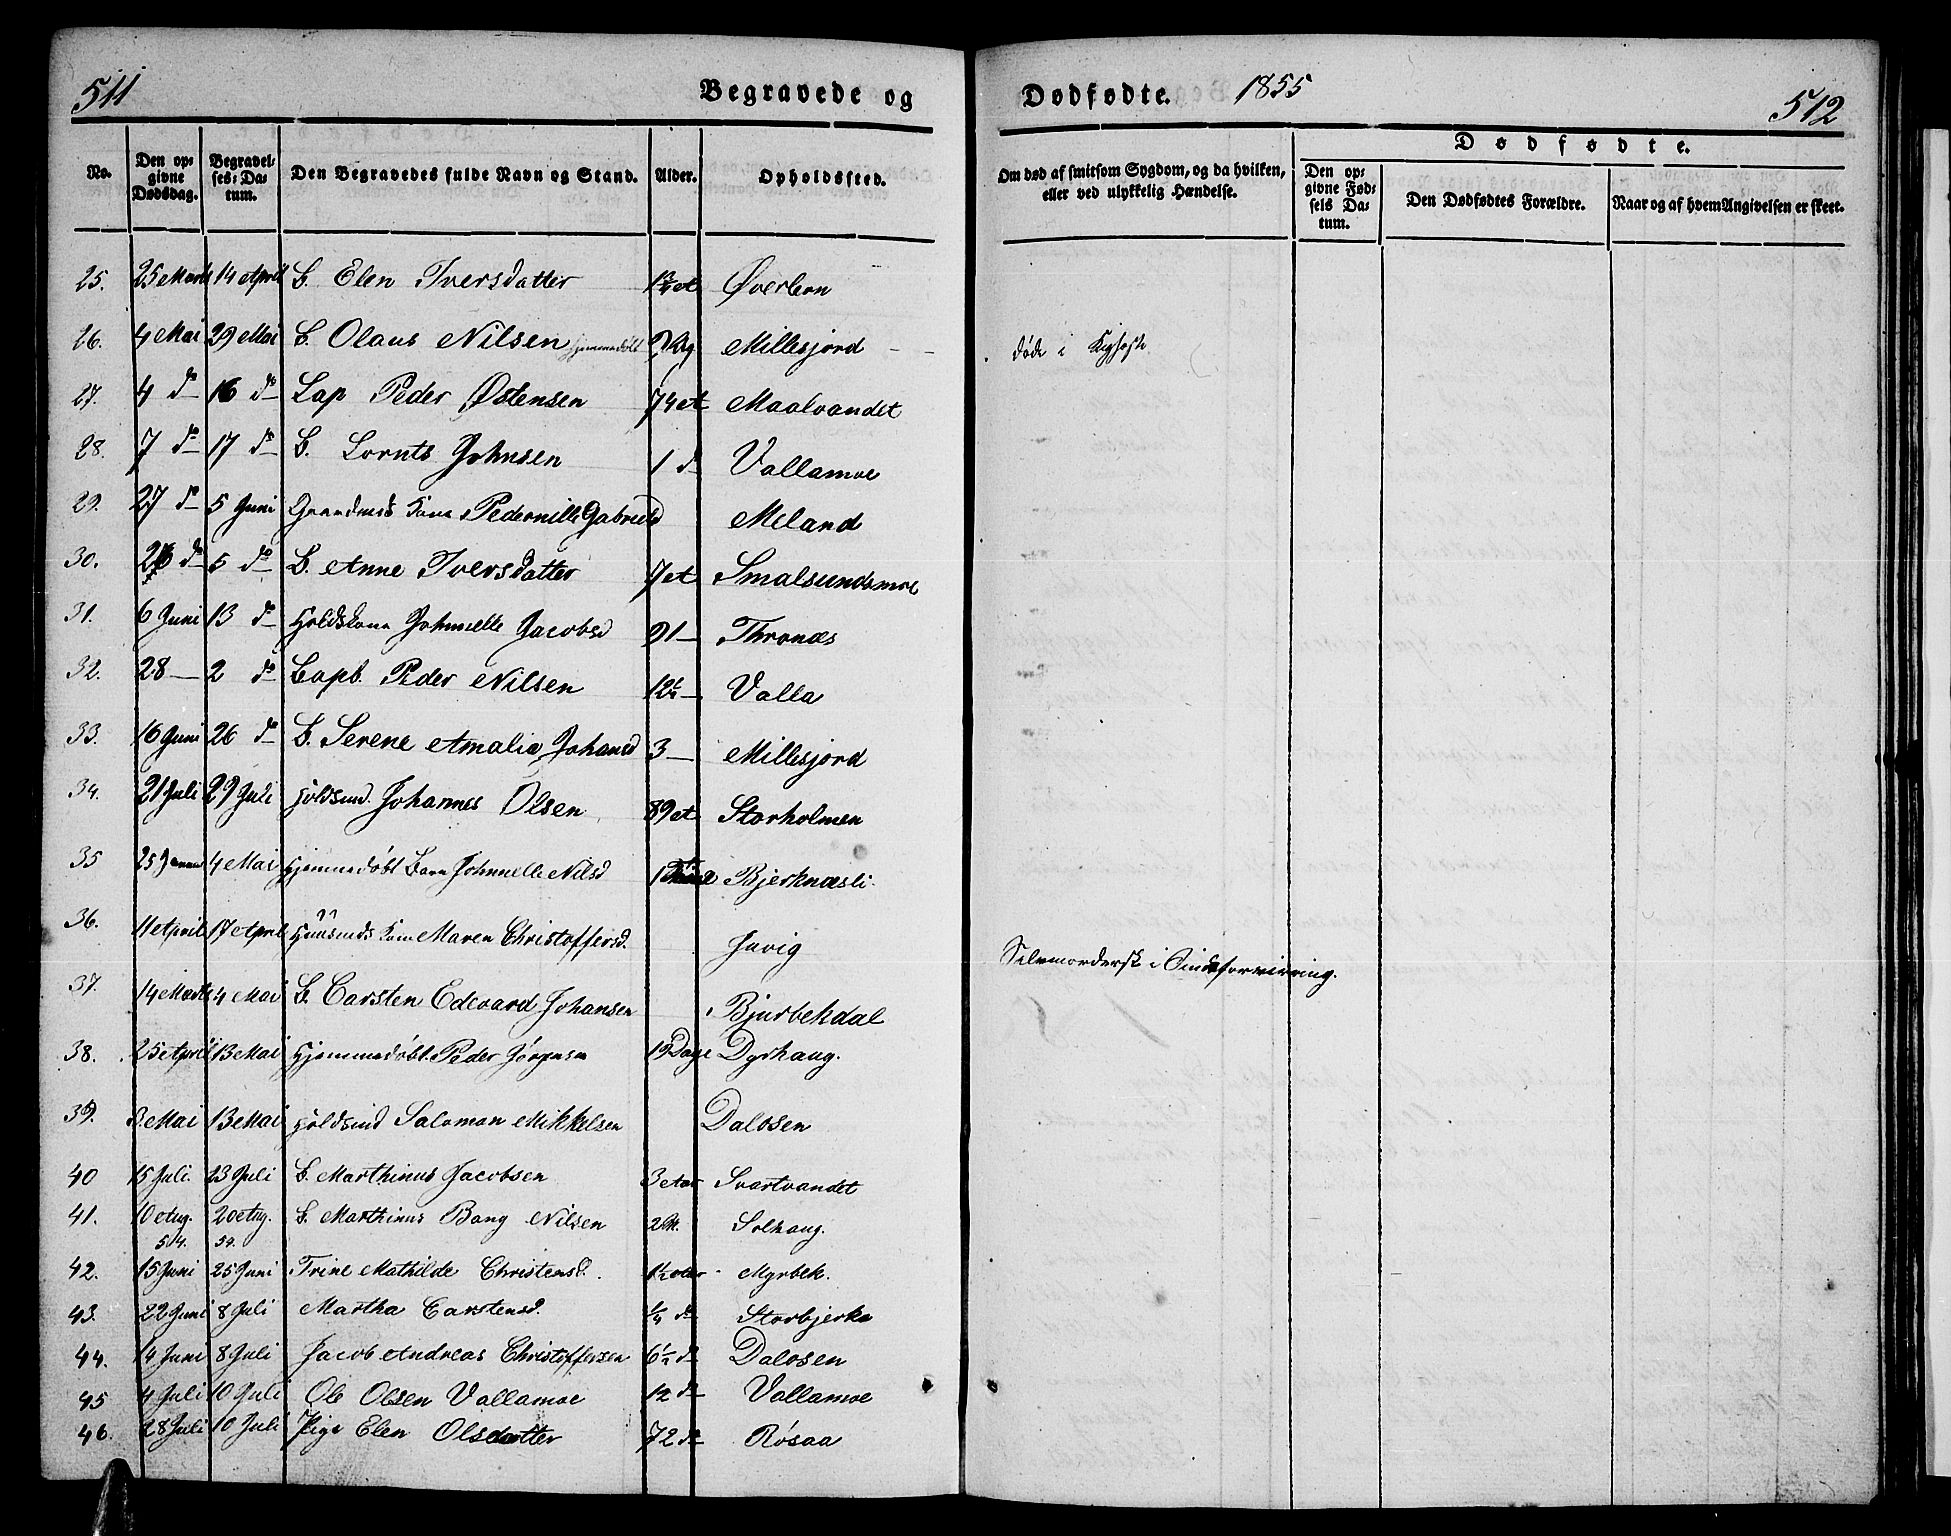 511
Begravede og
Dødfødte. 1855
512
No.
Den opgivne Dødsdag.
Begravelses-Datum.
Den Begravedes fulde Navn og Stand.
Alder.
Opholdssted.
Om død af smitsom Sygdom, og da hvilken, eller ved ulykkelig Hændelse.
Dødfødte.
Den opgivne Fødsels Datum.
Den Dødfødtes Forældre.
Naar og af hvem Angivelsen er skeet.
25. 25 Marts 14 April B. Elen Iversdatter Øverlern
26. 4 Mai 29 Mai B. Olaus Nilsen hjemmedøbt Millesjord død i Kighoste
27. 4 do 16 do Lap Peder Østensen 74 Maalvandet
28. 7 do 17 do B. Lornts Johnsen 1 do Vallamoe
29. 27 do 5 Juni Kone Pedernille Gabrielsd Meland
30. 26 do 5 do B. Anne Iversdatter 7 Smalsundsmoe
31. 6 Juni 13 do Holdskone Johnnelle Jacobsd 91 — Thronæs
32. 28 — 2 do Lapb. Peder Nilsen 12½ — Valla
33. 16 Juni 26 do B. Serene Amalia Johansd 3 — Millesjord
34. 21 Juli 29 Juli Johannes Olsen 89 Storholmen
35 25 4 Mai Hjemmedøbt Barn Johnnelle Nilsd Bjerknæsli.
36. 11 April 17 April Huusmds Kone Maren Christoffersd. Javig Selvmordersk i Sindsforvirring.
37. 14 Marts 4 Mai B. Carsten Edevard Johansen Bjurbekdal
38. 25 April 13 Mai Hjemmedøbt Peder Jörgensen 19 Dage Dyrhaug.
39. 3 Mai 13 Mai Salomon Mikkelsen Dalosen
40 15 Juli. 23 Juli B. Marthinus Jacobsen 3 Aar Svartvandet
41. 10 Aug. 54. 20 Aug. 54. B. Marthinus Bang Nilsen 2 M. Solhaug.
42. 15 Juni 25 Juni Trine Mathilde Christensd. 1½ Aar Myrbek.
43. 22 Juni 8 Juli Martha Carstensd. ¼ do Storbjerka
44. 14 Juni 8 Juli Jacob Andreas Christoffersen 6½ do Dalosen
45 4 Juli 10 Juli Ole Olsen Vallamoe 12 do Vallamoe
46. 28 Juli 10 Juli Pige Elen Olsdatter 72 do Rösaa